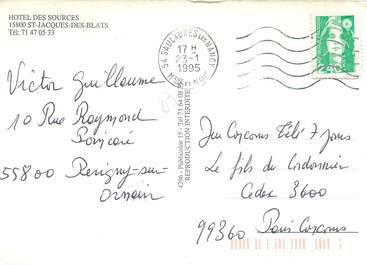 HOTEL DES SOURCES
15800 ST-JACQUES-DES-BLATS
Tél: 71 47 05 33
54 SAULXURES LES NANCY
17 H
23-1
1995
MEURTHE ET MOSELLE
2.40
Victor Guillaume
10 Rue Raymond
Poincaré
55800 Revigny-sur-
Ornain
4296 - Publicolor 15 - Tél 71 64 08
REPRODUCTION INTERDITE
Jeu Concours Télé 7 Jours
Le fils du Cordonnier
Cedex 3600
99360 Paris Concours